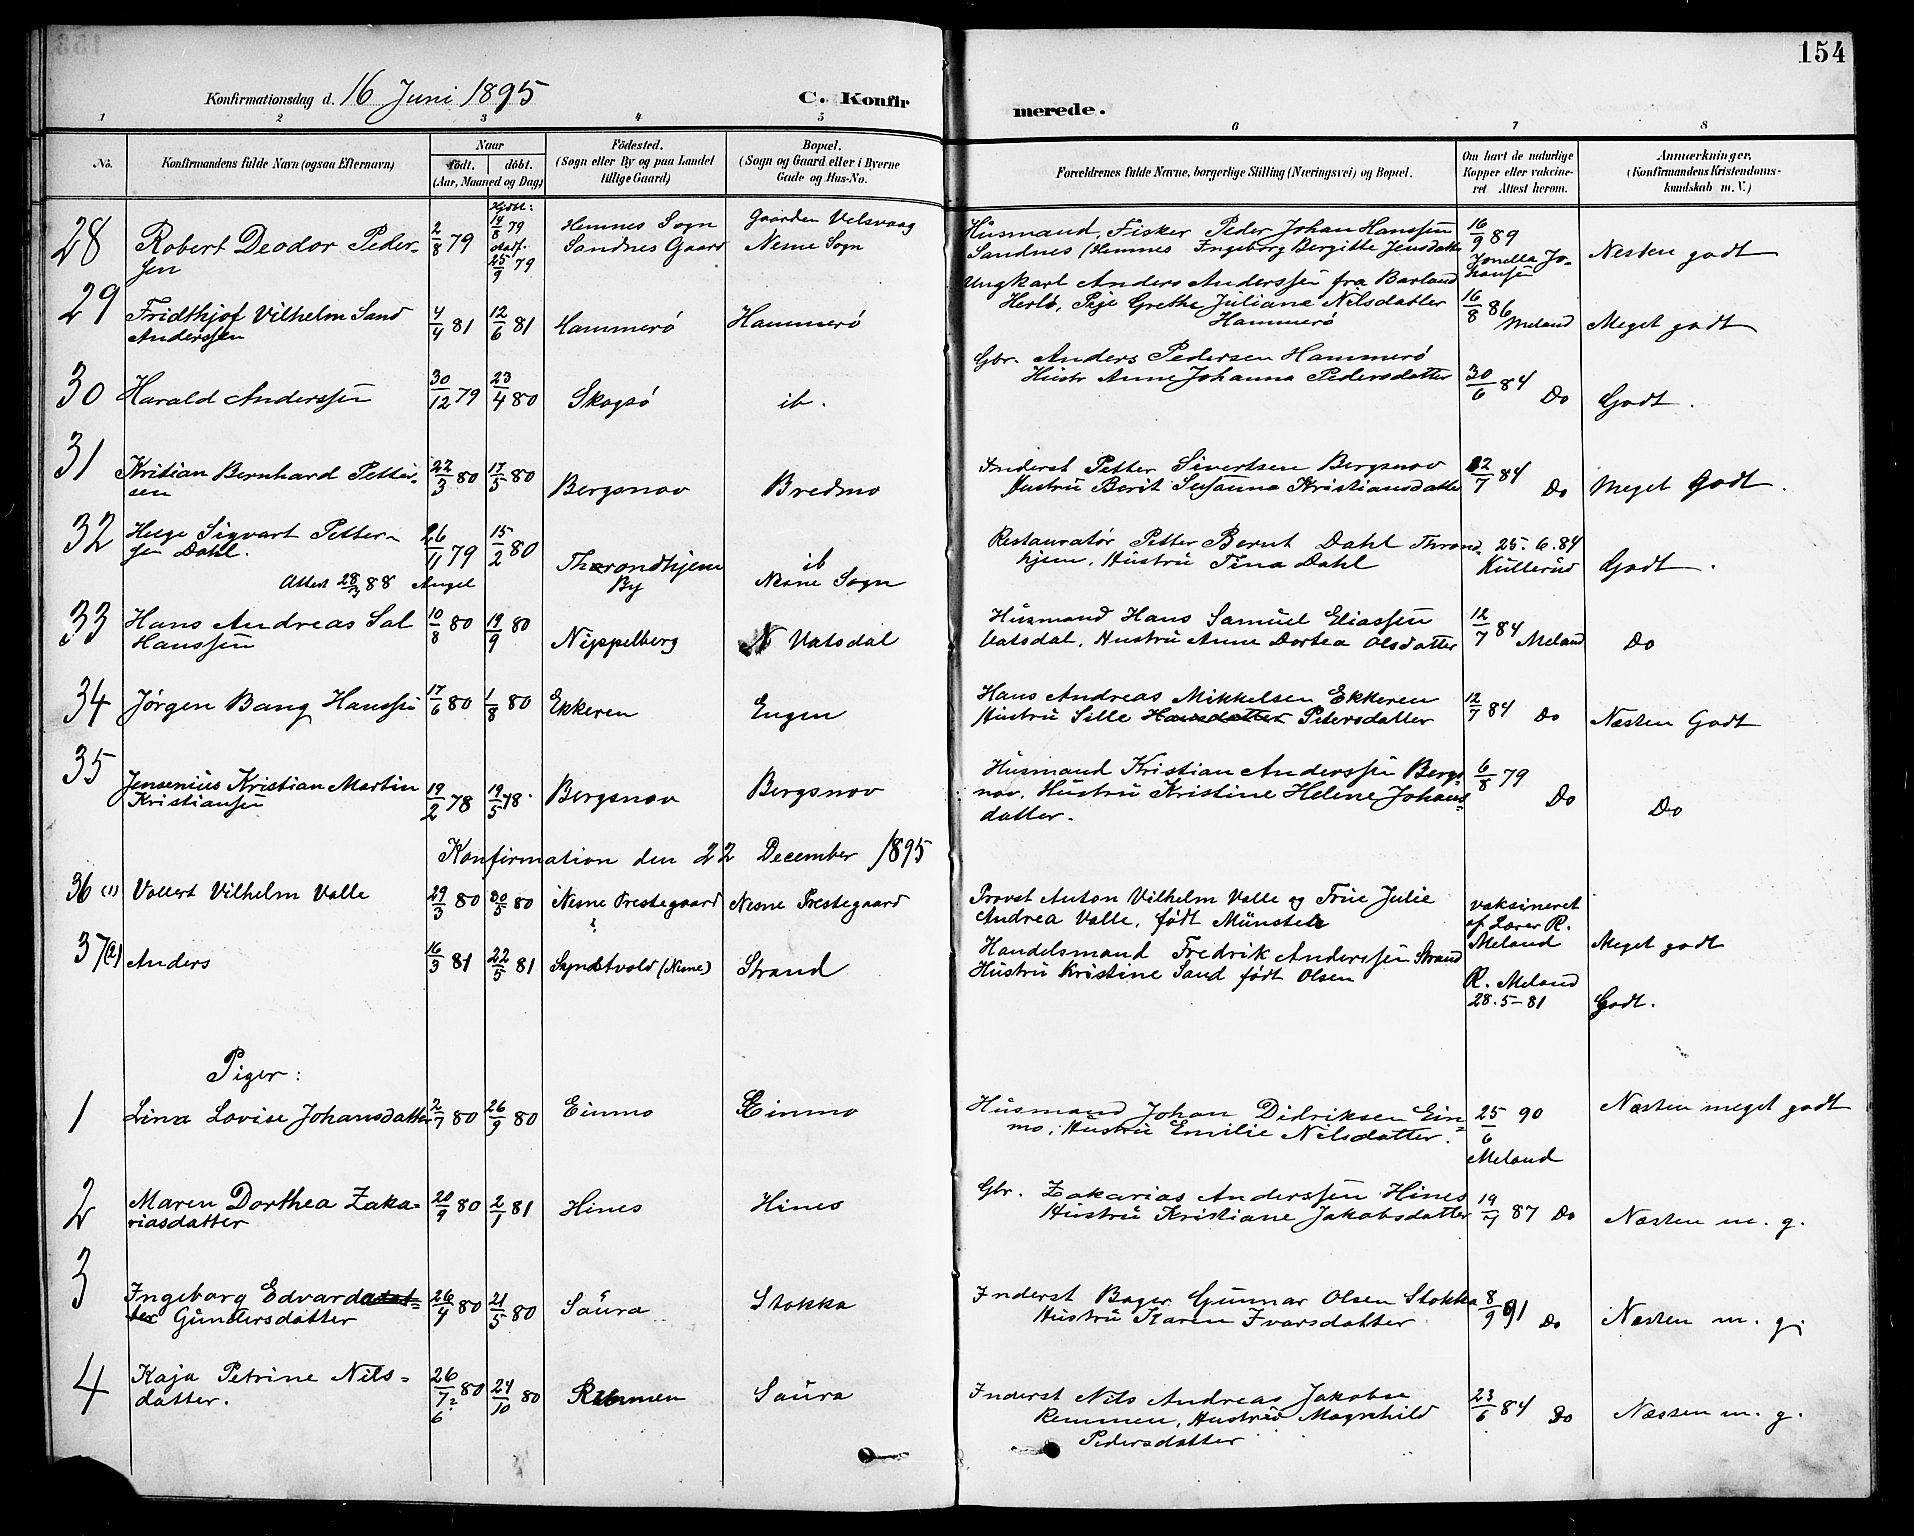 154
Konfirmationsdag d. 16 Juni 1895
C. Konfirmerede.
1 2 3 4 5 6 7 8
No.
Konfirmandens fulde Navn (ogsaa Efternavn)
Naar
født. døbt.
(Aar, Maaned og Dag)
Fødested.
(Sogn eller By og paa Landet
tillige Gaard)
Bopæl.
(Sogn og Gaard eller i Byerne
Gade og Hus-No.
Forældrenes fulde Navne, borgerlige Stilling (Næringsvei) og Bopæl.
Om havt de naturlige
Kopper eller vaccine-
ret Attest herom.
Anmærkninger.
(Konfirmandens Kristendoms-
kundskab m. V.)
28 Robert Deodor Peder-
sen
2/8 79
Hjdt:
14/8 79
Stadf.
25/9 79
Hemnes Sogn
Sandnes Gaard
Gaarden Velsvaag
Nesne Sogn
Husmand, Fisker Peder Johan Hanssen
Sandnes (Hemnes Ingeborg Bergitte Jensdatter
16/9 89
Jonella Jo-
hansen
Nesten godt
29 Fridthjof Vilhelm Sand
Anderssen
4/4 81 12/6 81 Hammerø Hammerø
Ungkarl Anders Anderssen fra Barland
Herlø, Pige Grethe Juliane Nilsdatter
Hammerø
16/8 86
Meland
Meget godt
30 Harald Anderssen 30/12 79 23/4 80 Skogsø ib.
Gbr. Anders Pedersen Hammerø
Hustr Anne Johanna Pedersdatter
30/6 84 Do Godt.
31 Kristian Bernhard Petter-
sen
22/3 80 17/5 80 Bergsnov Bredmo
Inderst Petter Sivertsen Bergsnov
Hustru Berit Susanna Kristiansdatter
12/7 84 Do Meget Godt.
32 Helge Sigvart Petter-
sen Dahl.
Attest 28/3 88 Angel
26/11 79 15/2 80
Throndhjem
By
ib
Nesne Sogn
Restauratør Petter Bernt Dahl Thrond-
hjem, Hustru Tina Dahl
25. 6. 84
Kullerud
Godt.
33 Hans Andreas Sal
Hanssen
10/8 80 19/9 80 Nippelberg N Vatsdal
Husmand Hans Samuel Eliassen
Vatsdal, Hustru Anne Dortea Olsdatter
12/7 84 Meland Do
34 Jørgen Bang Hanssen 17/6 80 1/8 80 Ekkeren Engen
Hans Andreas Mikkelsen Ekkeren
Hustru Sille Hansdatter Petersdatter
12/7 84 Do Næsten Godt
35 Jensenius Kristian Martin
Kristiansen
19/2 78 19/5 78 Bergsnov Bergsnov
Husmand Kristian Anderssen Bergs-
nov, Hustru Kristine Helene Johans-
datter.
6/8 79 Do Do
Konfirmation den 22 December 1895
36 (1) Vollert Vilhelm Valle 29/3 80 30/5 80 Nesne Prestegaard Nesne Prestegaard
Provst Anton Vilhelm Valle og Frue Julie
Andrea Valle, født Münster
vaksineret
af Lærer R.
Meland
Meget godt
37 (2) Anders 16/3 81 22/5 81 (Nesne) Strand
Handelsmand Fredrik Anderssen Strand
Hustru Kristine Sand født Olsen
R. Meland
28. 5 - 81
Godt.
Piger:
1 Lina Lovise Johansdatter 2/7 80 26/9 80 Einmo Einmo
Husmand Johan Didriksen Ein-
mo, Hustru Emilie Nilsdatter.
25/6 90
Meland
Næsten meget godt
2 Maren Dorthea Zaka-
riasdatter
20/9 80 2/1 81 Hines Hines
Gbr. Zakarias Anderssen Hines
Hustru Kristiane Jakobsdatter
19/7 87 Do Næsten m. g.
3 Ingeborg Edvardadat-
ter Gundersdatter
26/4 80 21/5 80 Saura Stokka
Inderst Bager Gunnar Olsen Stokka
Hustru Karen Ivarsdatter
8/9 91 Do Næsten m. g.
4 Kaja Petrine Nils-
datter.
26/7? 80
6
24/10 80 Remmen Saura
Inderst Nils Andreas Jakobse
Remmen, Hustru Magnhild
Pedersdatter
23/6 84 Do Næsten m. g.